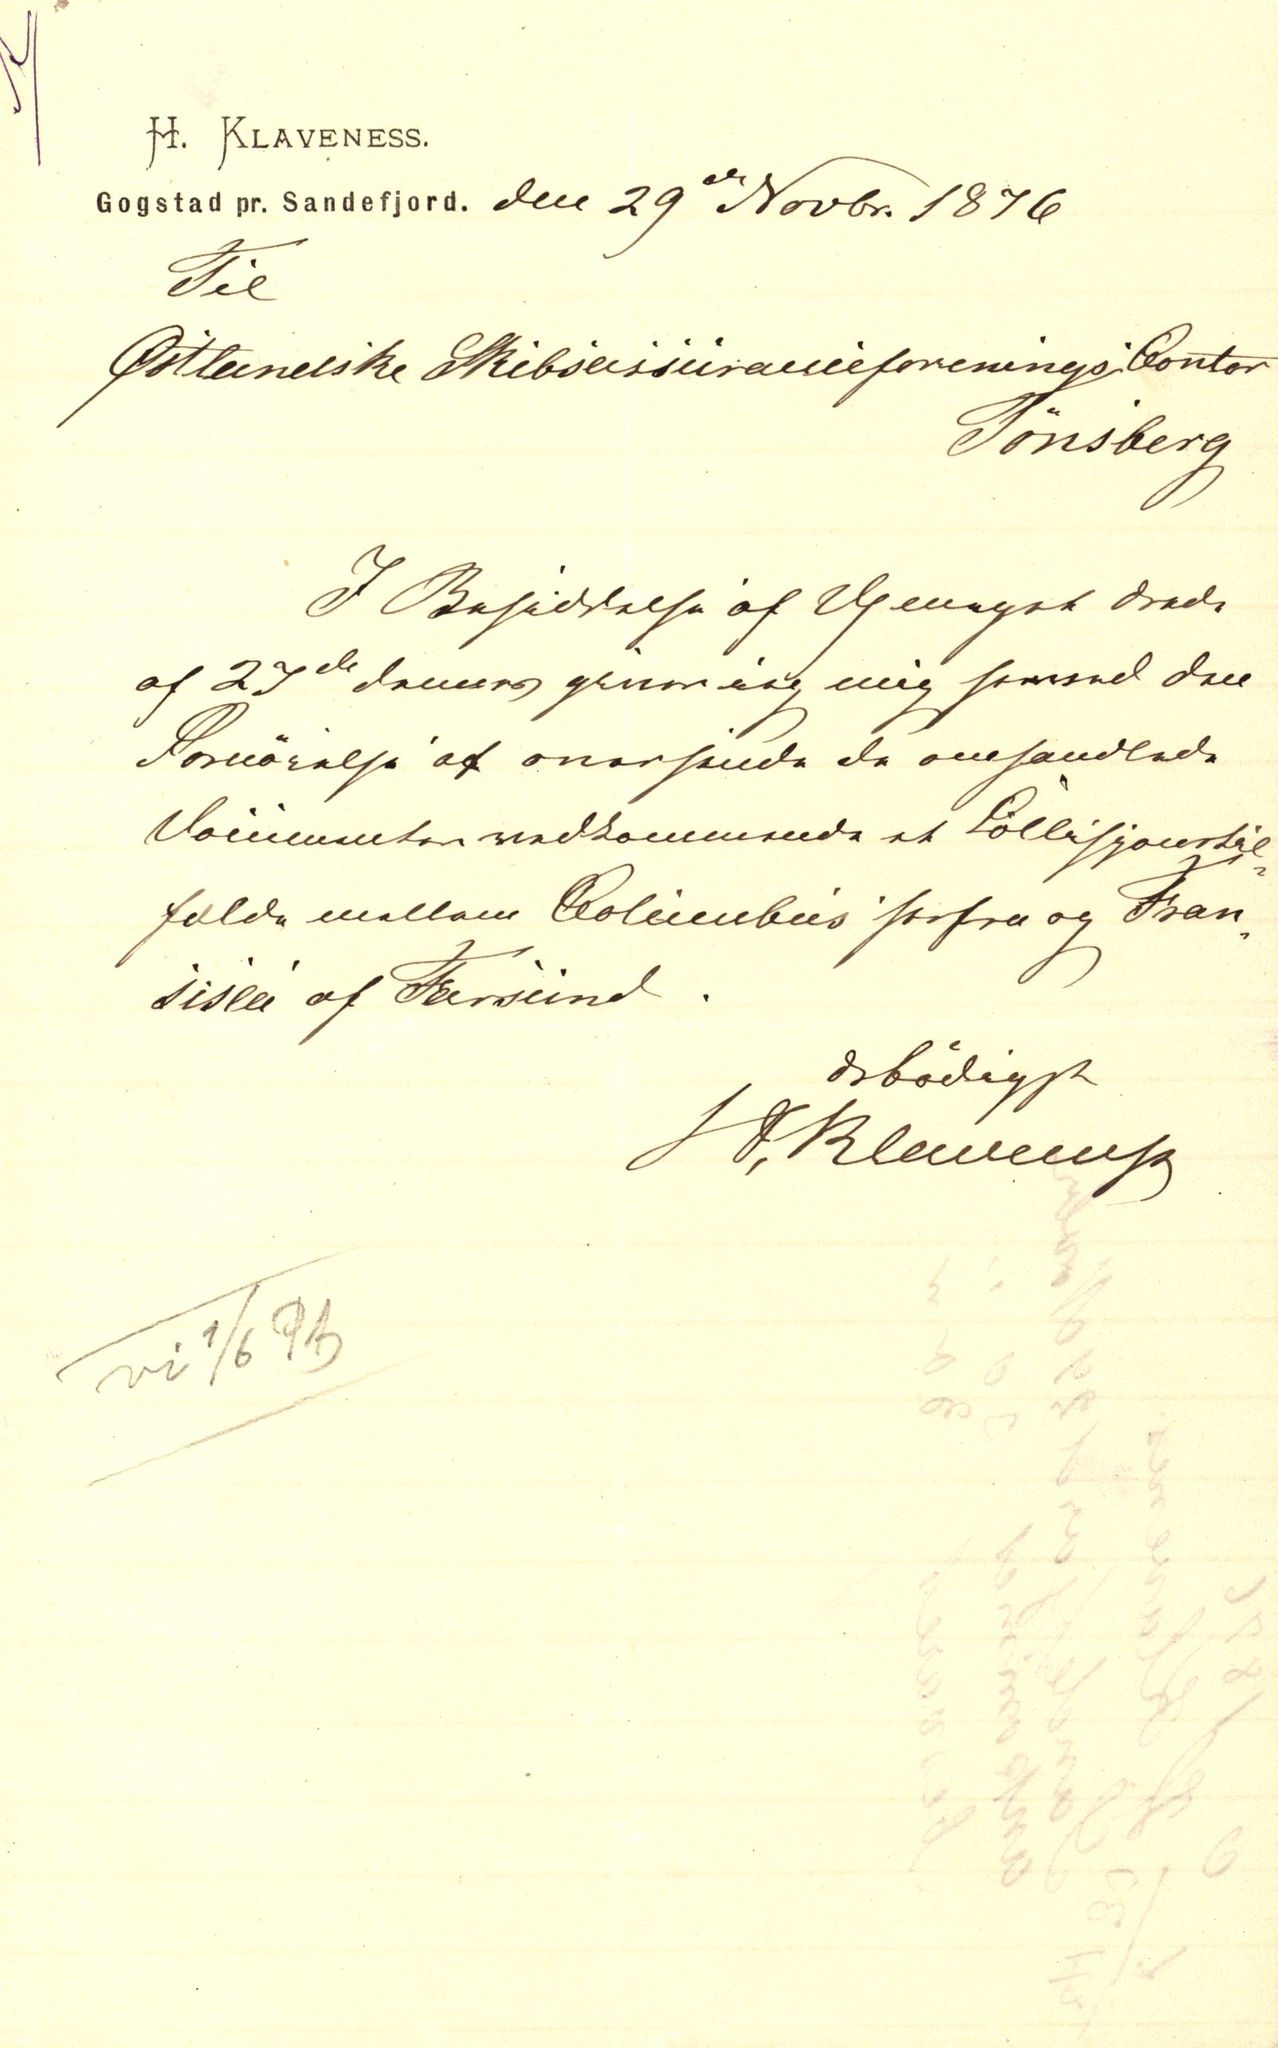 H. KLAVENESS.
Gogstad pr. Sandefjord. den 29de Novbr. 1876
Til
Østlandske Skibsassuranceforenings Contor
Tönsberg
I Besiddelse af Deres
af 27de dennes giver jeg mig herved den
Fornöielse at oversende de omhandlede
Documenter vedkommende et Collisjonstil-
fælde mellem Columbus herfra og Fran-
sisca af Farsund.
Ærbödigst
H. Klaveness
vi 1/6